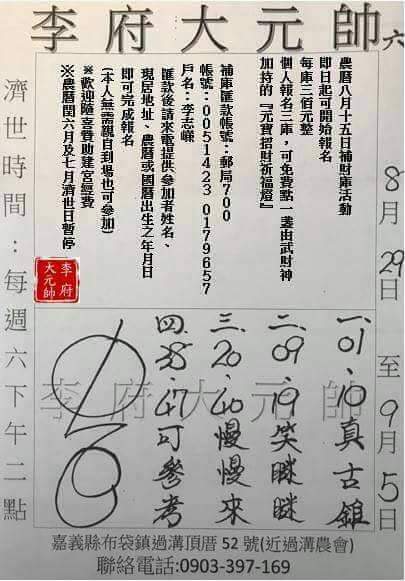 李府大元帥 六
農曆八月十五日補財庫活動
即日起可開始報名
每庫三佰元整
個人報名三庫，可免費點一盞由武財神
加持的『元寶招財祈福燈』
補庫匯款帳號：郵局700
帳號：0051423 0179657
戶名：李志嶸
匯款後請來電提供參加者姓名、
現居地址、農曆或國曆出生之年月日
即可完成報名
(本人無需親自到場也可參加)
※歡迎隨喜贊助建宮經費
※農曆閏六月及七月濟世日暫停
李府
大元帥
8月29日至9月5日
濟世時間：每週六下午二點
李府大元帥
一、01、10真古錐
二、09、19笑瞇瞇
三、20、40慢慢來
四、38、47可參考
嘉義縣布袋鎮過溝頂厝 52 號(近過溝農會)
聯絡電話:0903-397-169